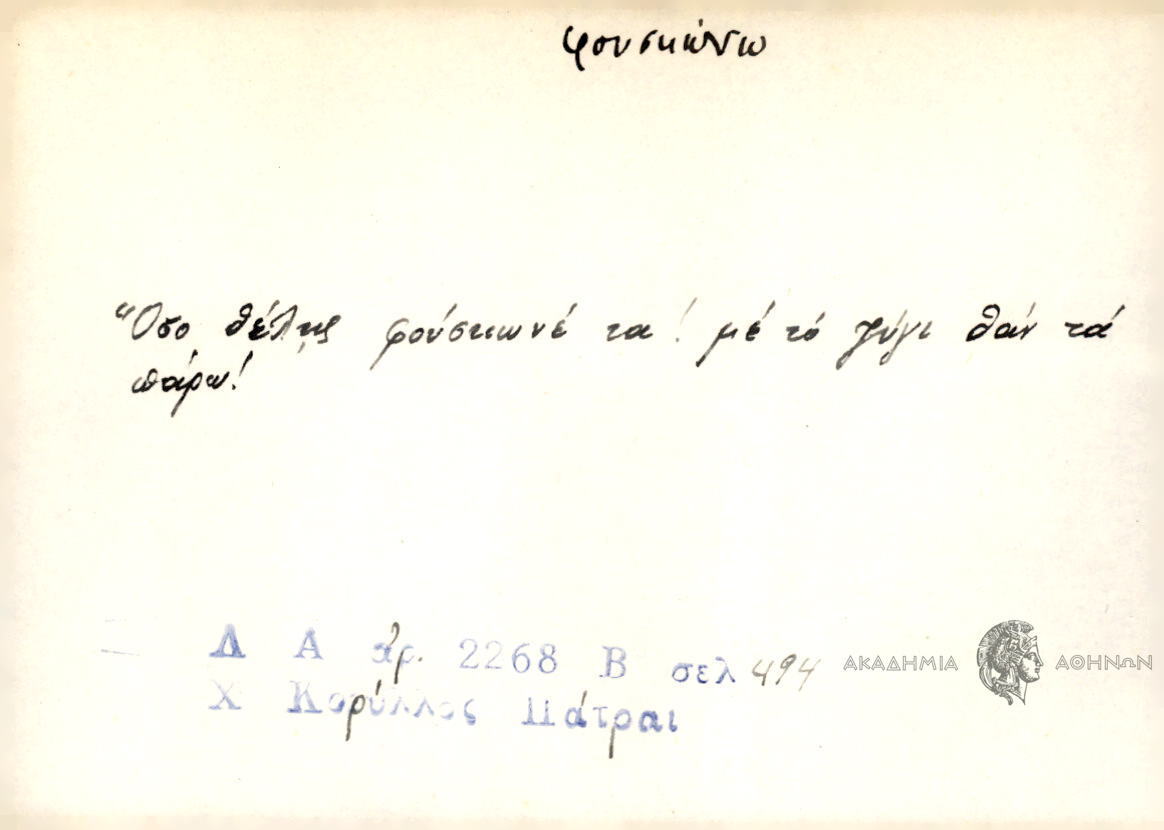 φουσκώνω
Ὅσο θέλῃς φούσκωνέ τα! μέ τό ζύγι θάν τά
πάρω!
Λ Α ἀρ. 2268 Β σελ 494
Χ Κορύλλος Πάτραι
ΑΚΑΔΗΜΙΑ ΑΘΗΝΩΝ